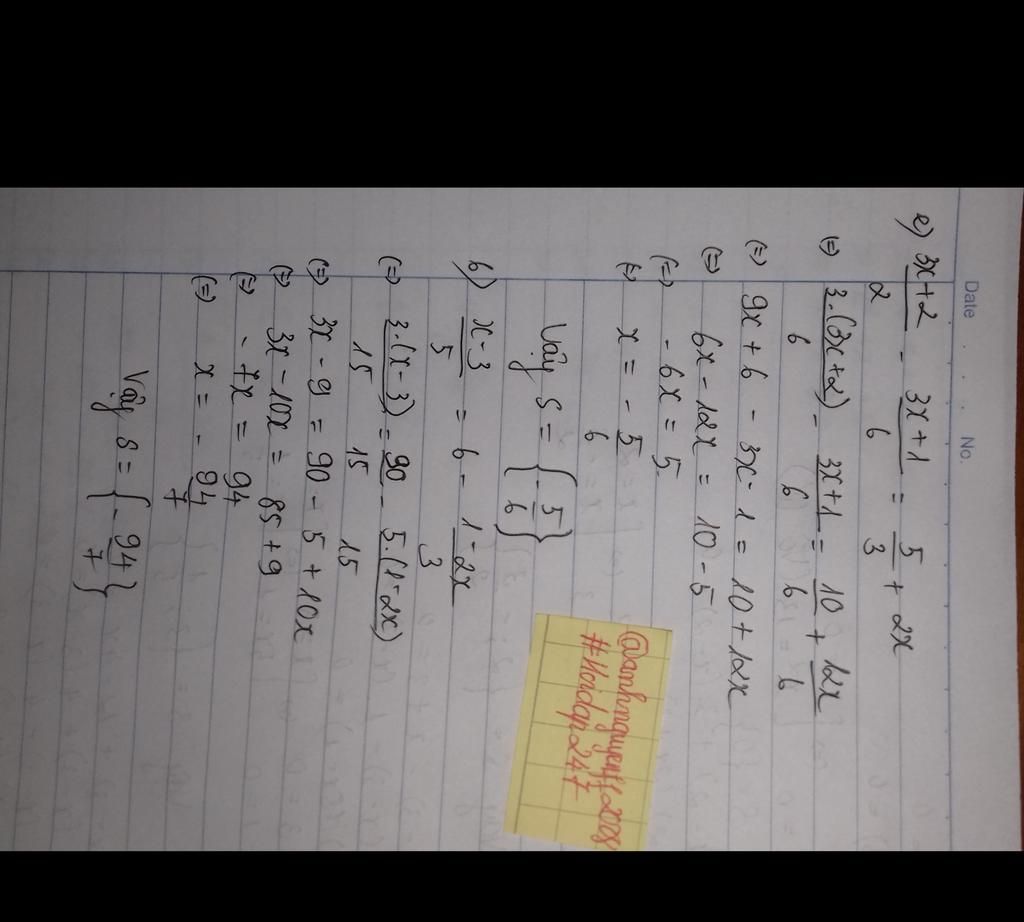 Date . . . No.
a) 3x+2/2 - 3x+1/6 = 5/3 + 2x
(=) 3.(3x+2)/6 - 3x+1/6 = 10/6 + 12x/6
(=) 9x+6 - 3x-1 = 10+12x
(=) 6x-12x = 10-5
(=) -6x = 5
(=) x = -5/6
Vậy S = {-5/6}
b) x-3/5 = 6 - 1-2x/3
(=) 3.(x-3)/15 = 90/15 - 5.(1-2x)/15
(=) 3x-9 = 90-5+10x
(=) 3x-10x = 85+9
(=) -7x = 94
(=) x = -94/7
Vậy S = {-94/7}
#Hoidap247